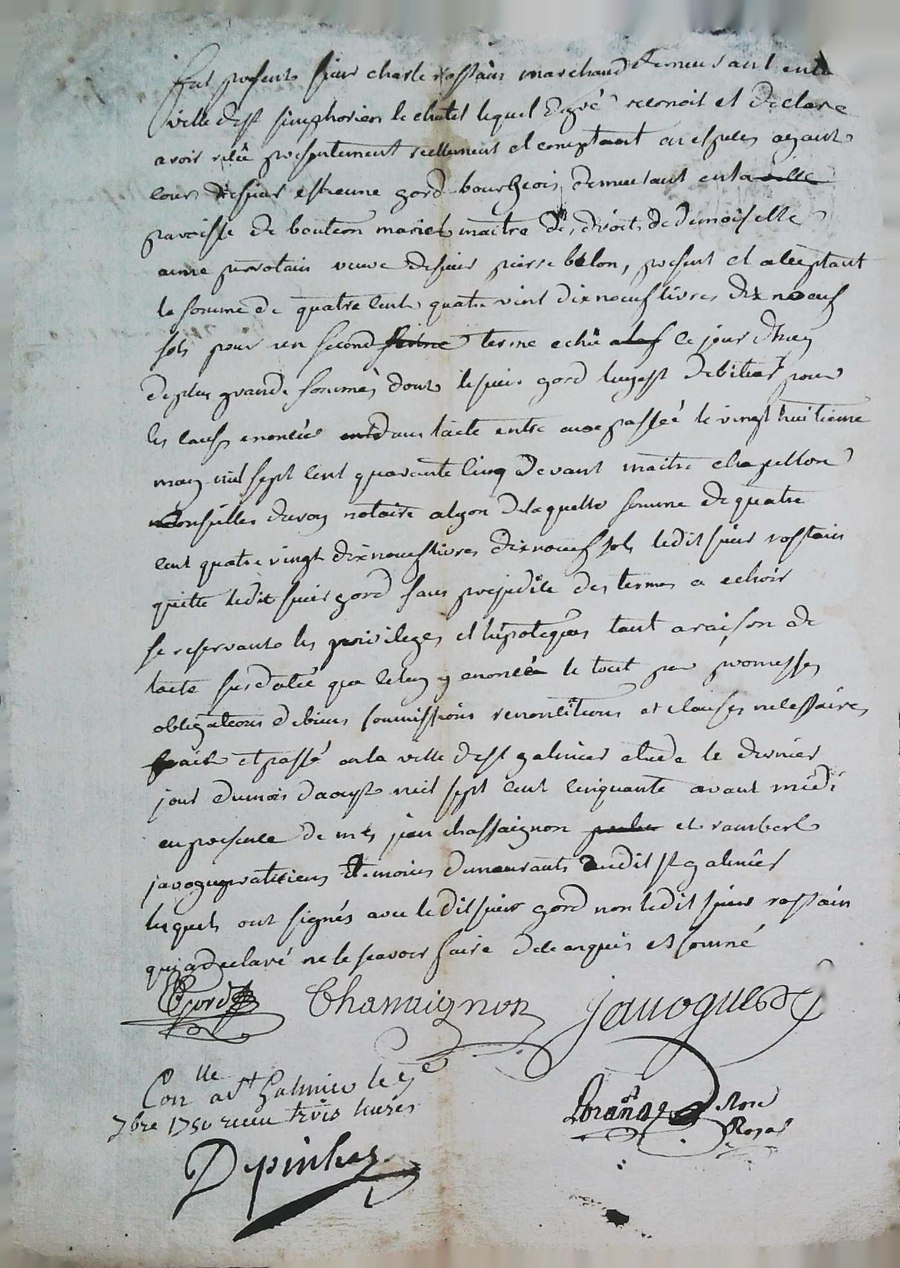 fut present sieur charle rostain marchand demeurant en la
ville de st simphorien le chatel lequel de gré reconoit et declare
avoir reçu presentement reellement et comptant en especes ayant
cours de sieur estienne gord bourgeois demeurant en la ville
paroisse de bouteon mari et maitre des droits de demoiselle
anne perrotain veuve de sieur pierre belon, present et acceptant
la somme de quatre cent quatre vint dix neuf livres dix neuf
sols pour un second terme echû ce jour d'huy
de plus grande sommes dont le sieur gord luy est debiteur pour
les causes enoncée dans l'acte entre eux passée le vingt huitieme
may mil sept cent quarante cinq devant maitre chapellon
notaire a lyon de laquelle somme de quatre
cent quatre vingt dix neuf livres dix neuf sols ledit sieur rostain
quitte ledit sieur gord sans prejudice des termes a echoir
se reservant les privileges et hipoteques tant a raison de
l'acte susdatée que celuy y enoncée le tout par promesses
obligations de biens soumissions renonciations et clauses necessaires
fait et passé en la ville de st galmier etude le dernier
jour du mois d'aoust mil sept cent cinquante avant midi
en presence de mes jean chassaignon et rambert
javogue praticiens temoins demeurants audit st galmier
lesquels ont signés avec ledit sieur gord non ledit sieur rostain
qui a declaré ne le sçavoir faire de ce enquis et sommé
Gord Chassaignon javogues
Conlle a st Galmier le 7e
7bre 1750 reçu trois livres
Depinhac